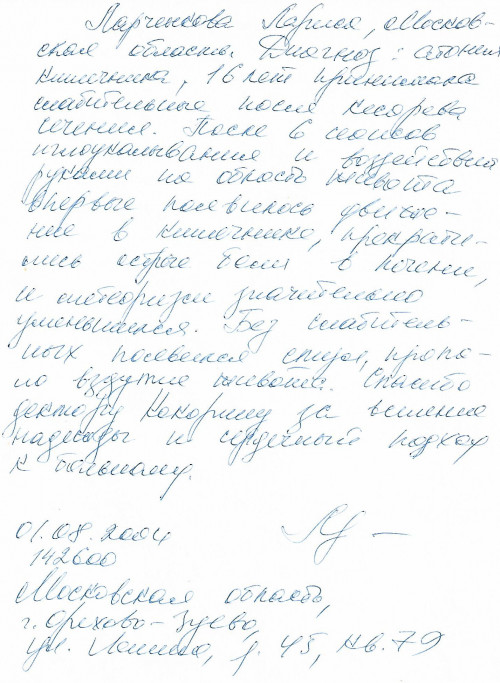 Ларченкова Лариса, Москов-
ская область. Диагноз: атония
кишечника, 16 лет принимала
слабительные после кесарева
сечения. После 6 сеансов
иглоукалывания и воздействия
руками на область живота
впервые появилось движе-
ние в кишечнике, прекрати-
лись острые боли в печени,
и метеоризм значительно
уменьшился. Без слабитель-
ных появился стул, пропа-
ло вздутие живота. Спасибо
доктору Кокорину за вселение
надежды и сердечный подход
к больному.
01.08.2004
142600
Московская область,
г. Орехово-Зуево,
ул. Ленина, д. 45, кв. 79